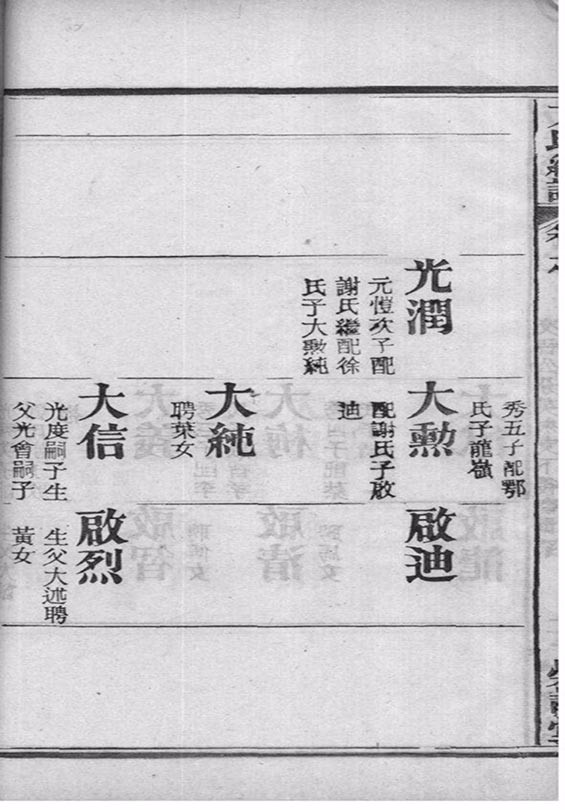 秀五子配鄂
氏子龍嶺
光潤
元愷次子配
謝氏繼配徐
氏子大勲純
大勲
配謝氏子啟
迪
啟迪
大純
聘葉女
大信
光度嗣子生
父光會嗣子
啟烈
生父大述聘
黃女